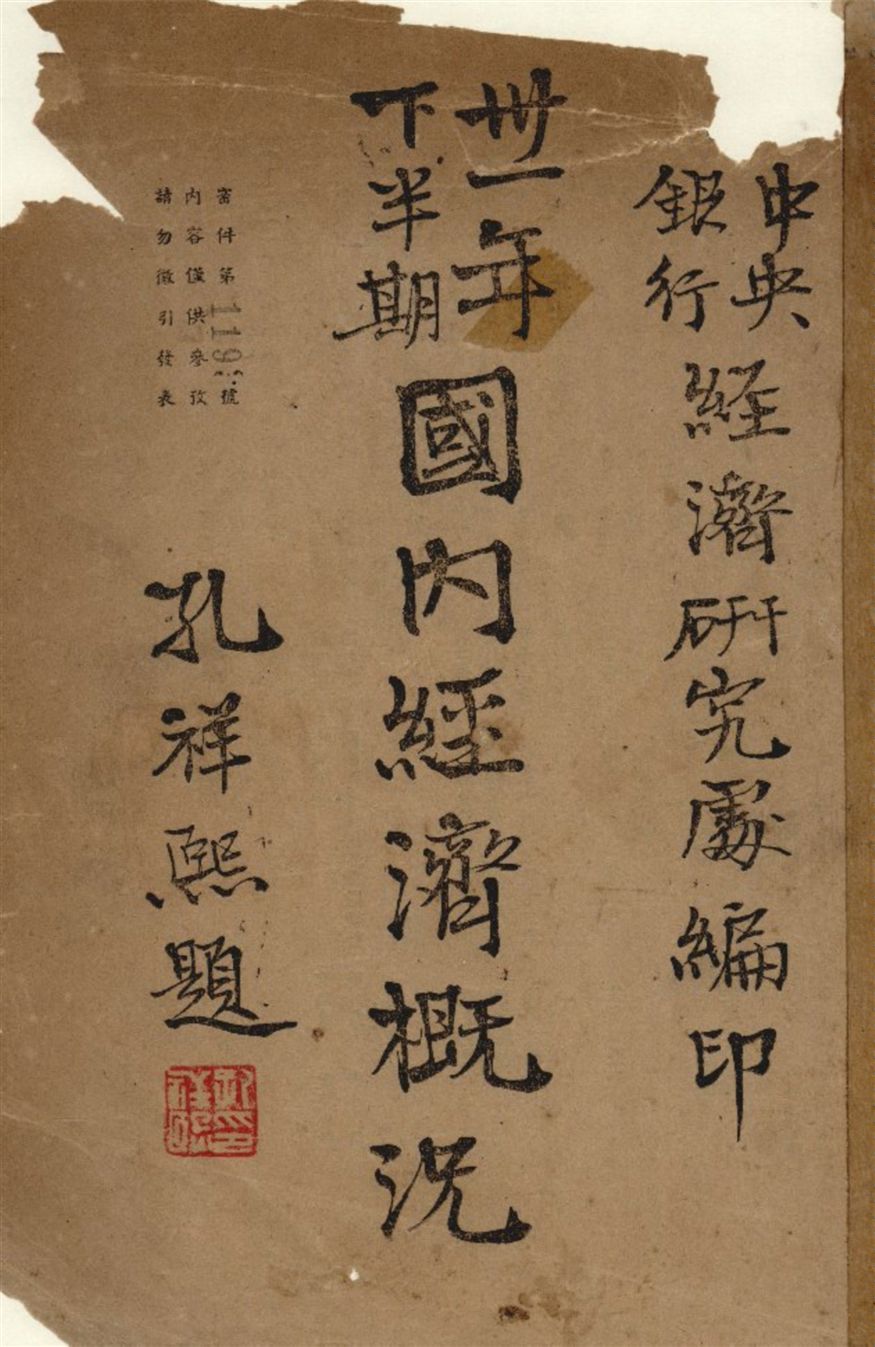 中央
銀行
經濟研究處編印
卅一年
下半期
國內經濟概況
密件第119號
內容僅供參攷
請勿徵引發表
孔祥熙題